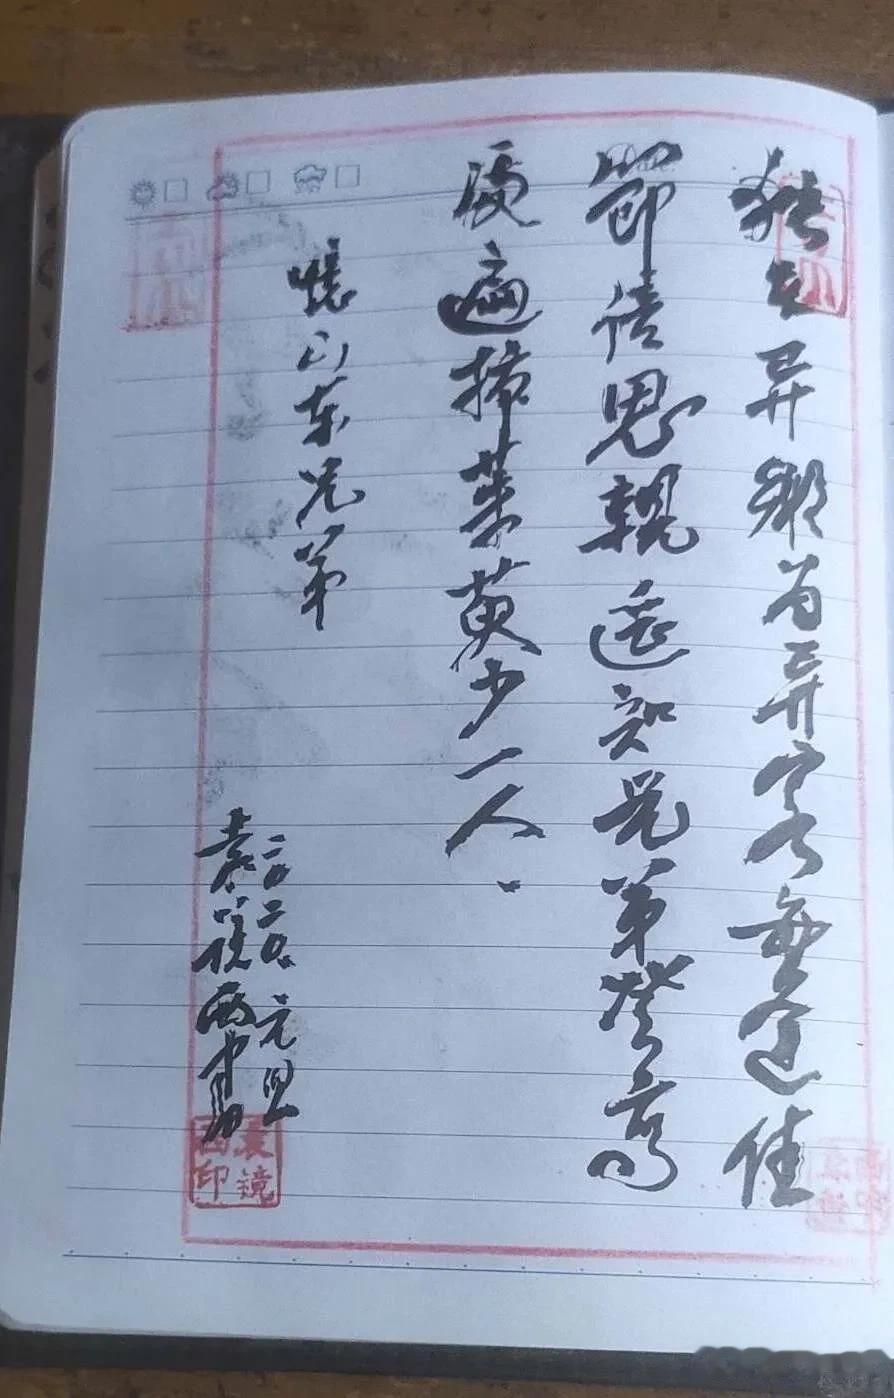 独在异乡为异客每逢佳
節倍思親遥知兄弟登高
處遍插茱萸少一人
憶山东兄弟
二〇二〇元旦
袁
袁镜西印